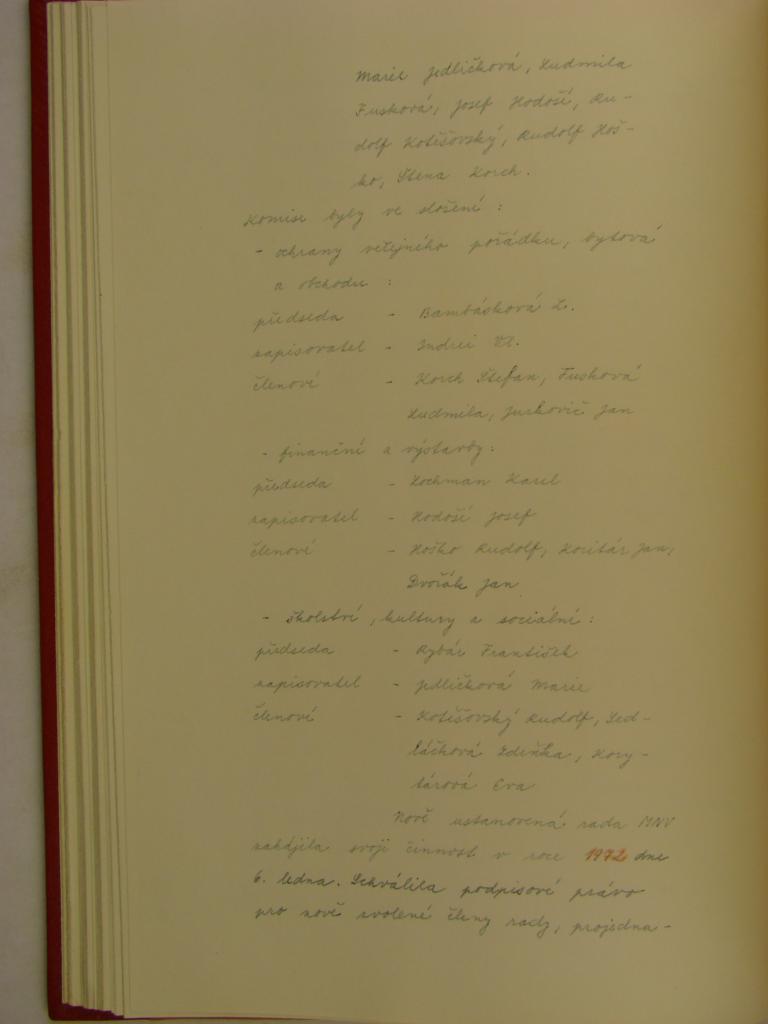 Marie Jedličková, Ludmila
Fusková, Josef Hodoší, Ru-
dolf Kotišovský, Rudolf Hoš-
ko, Štena Korch.
Komise byly ve složení :
- ochrany veřejného pořádku, bytová
a obchodu :
předseda - Bambásková L.
zapisovatel - Indrei Vl.
členové - Korch Štefan, Fusková
Ludmila, Jurkovič Jan
- finanční a výstavby :
předseda - Hochman Karel
zapisovatel - Hodoší Josef
členové - Hoško Rudolf, Koritár Jan,
Dvořák Jan
- školství, kultury a sociální :
předseda - Rybár František
zapisovatel - Jedličková Marie
členové - Kotišovský Rudolf, Sed-
láčková Zdeňka, Kory-
tárová Eva
Nově ustanovená rada MNV
zahájila svoji činnost v roce 1972 dne
6. ledna. Schválila podpisové právo
pro nově zvolené členy rady, projedna-